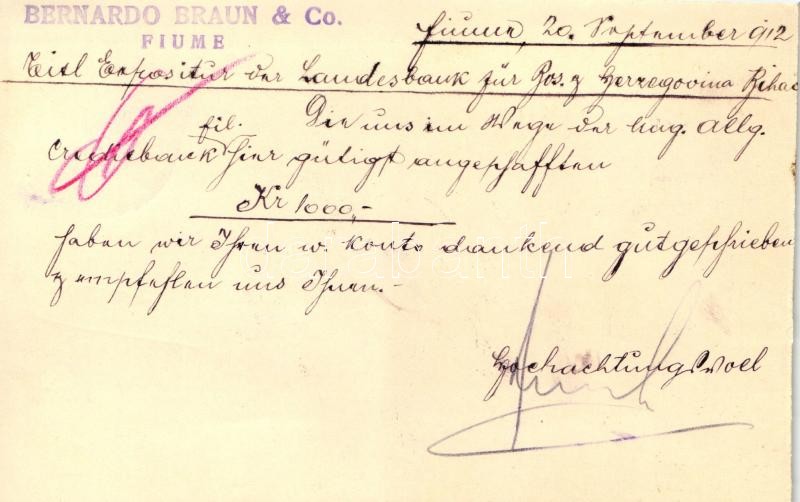 BERNARDO BRAUN & Co.
FIUME
Fiume, 20. September 912
Titl Expositur der Landesbank für Bos. & Herzegovina Bihac
Die uns im Wege der ung. Allg.
Creditbank fil. hier gütigst angeschafften
Kr 1000,-
haben wir Ihren w. Konto dankend gutgeschrieben
& empfehlen uns Ihnen.-
Hochachtungsvoll